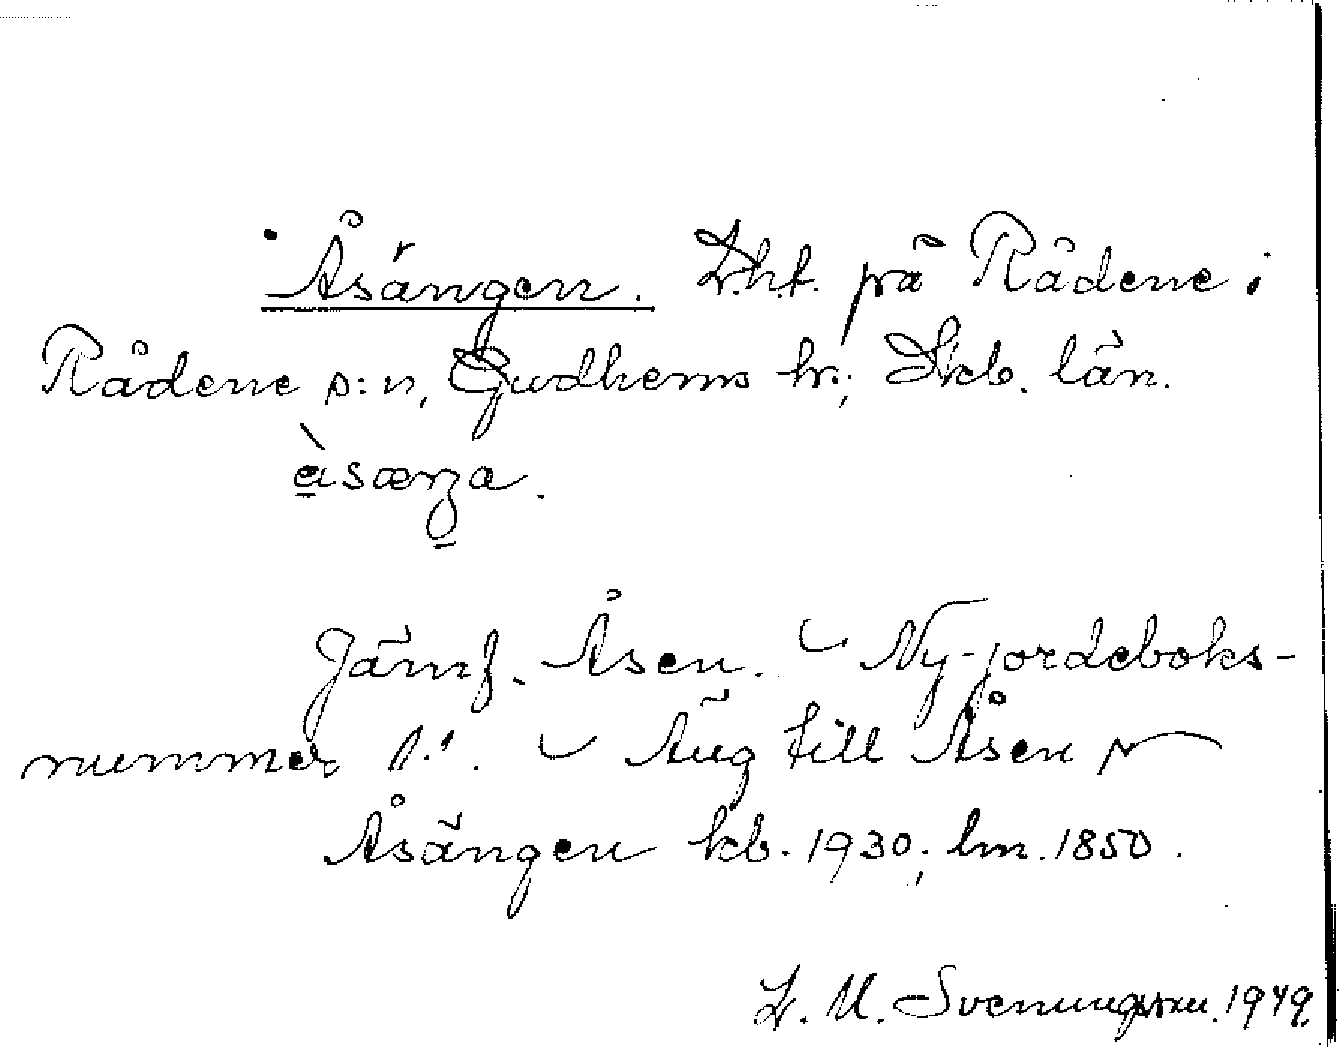 Åsängen. Lht. på Rådene i
Rådene s:n, Gudhems hr; Skb. län.
Jämf. Åsen. Ny jordeboks-
nummer 1:1. Äng till Åsen
Åsängen kb. 1930; lm. 1850.
L. M. Svenungsson. 1949